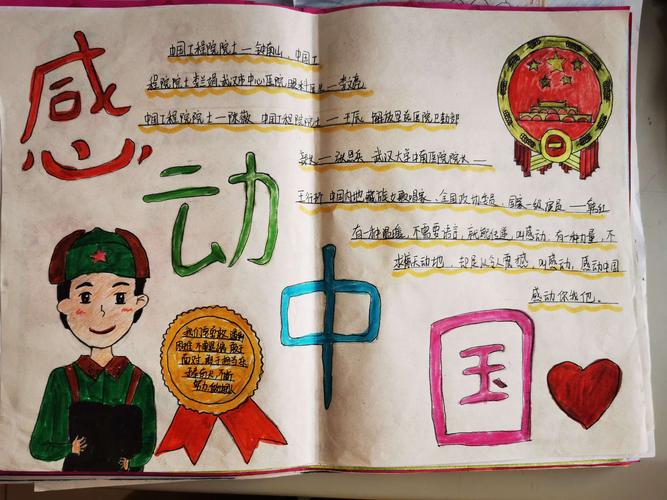 感动中国
中国工程院院士—钟南山、中国工
程院院士李兰娟 武汉市中心医院 眼科医生—李文亮
中国工程院院士—陈薇 中国工程院院士—王辰 解放军 医院卫勤部
—张思兵 武汉大学中南医院院长—
王行环 中国内地 藏族女歌唱家、全国政协委员、国家一级演员—韩红
有一种 不需要语言,就 叫感动,有一种力量,不
求 天动地,却足以令人震撼,叫感动,感动中国
感动你我他。
我们要
困难 不要退缩 敢于
面对 敢于担当
努力